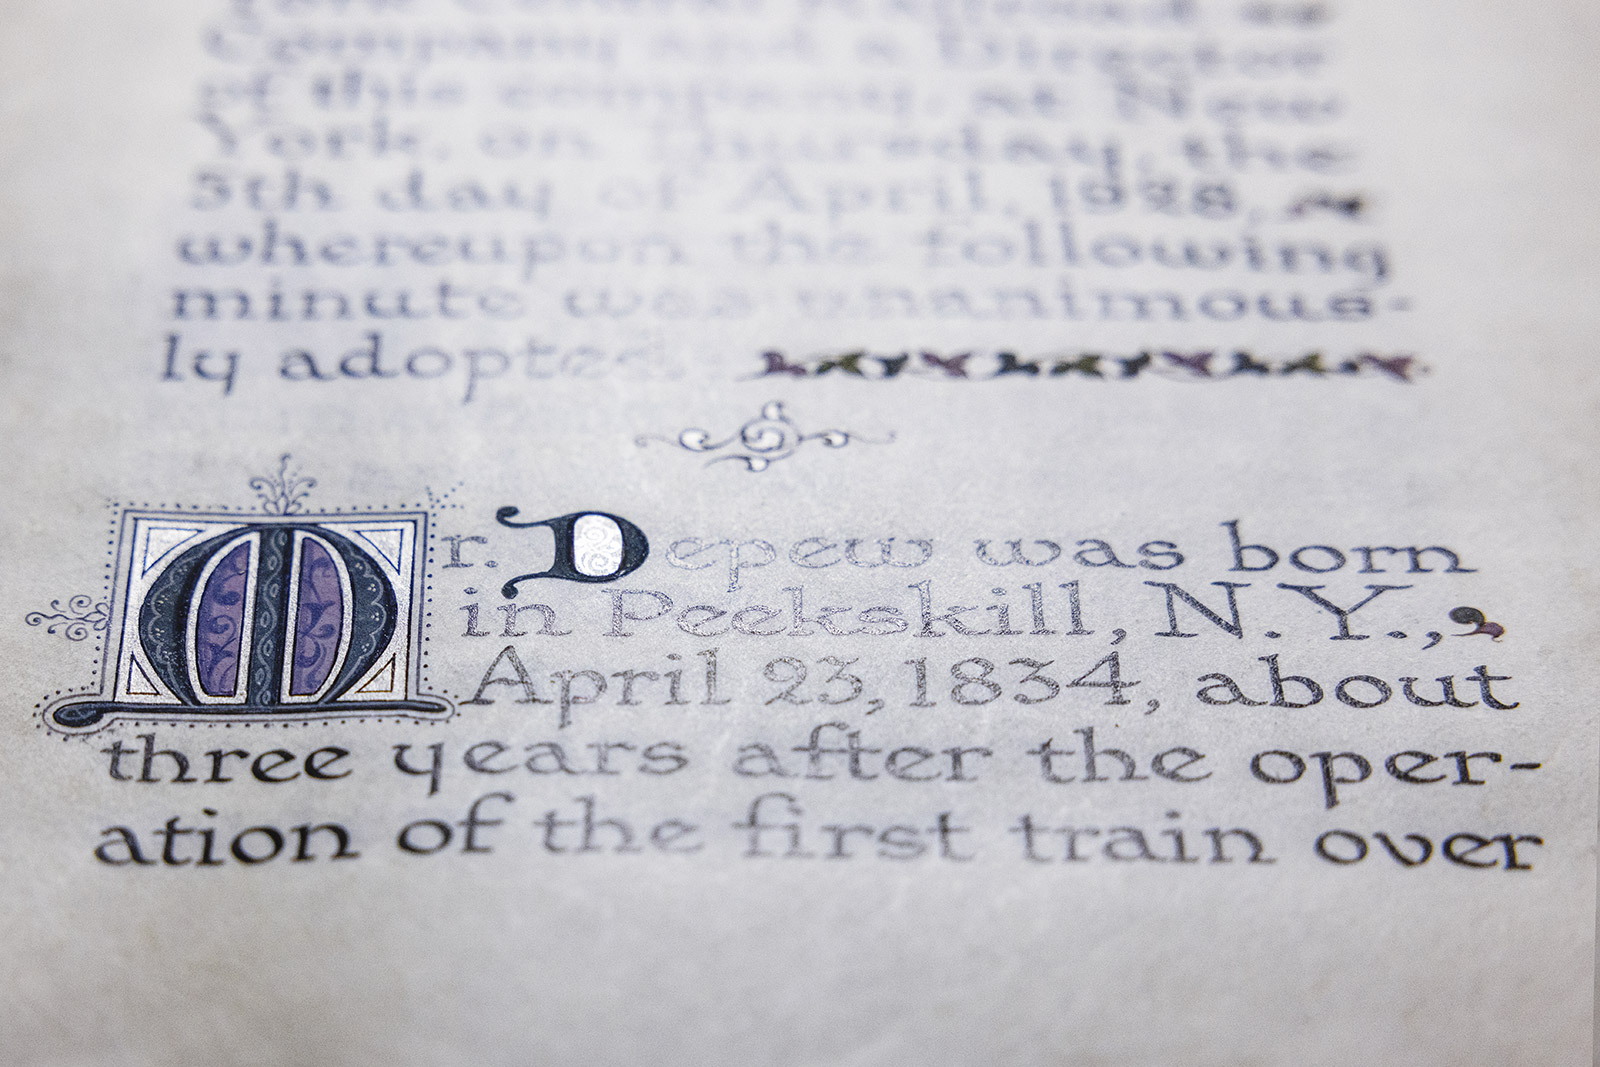 Company and a Director
of this company, at New
York, on Thursday, the
5th day of April, 1928,
whereupon the following
minute was unanimous-
ly adopted
Mr. Depew was born
in Peekskill, N.Y.,
April 23, 1834, about
three years after the oper-
ation of the first train over